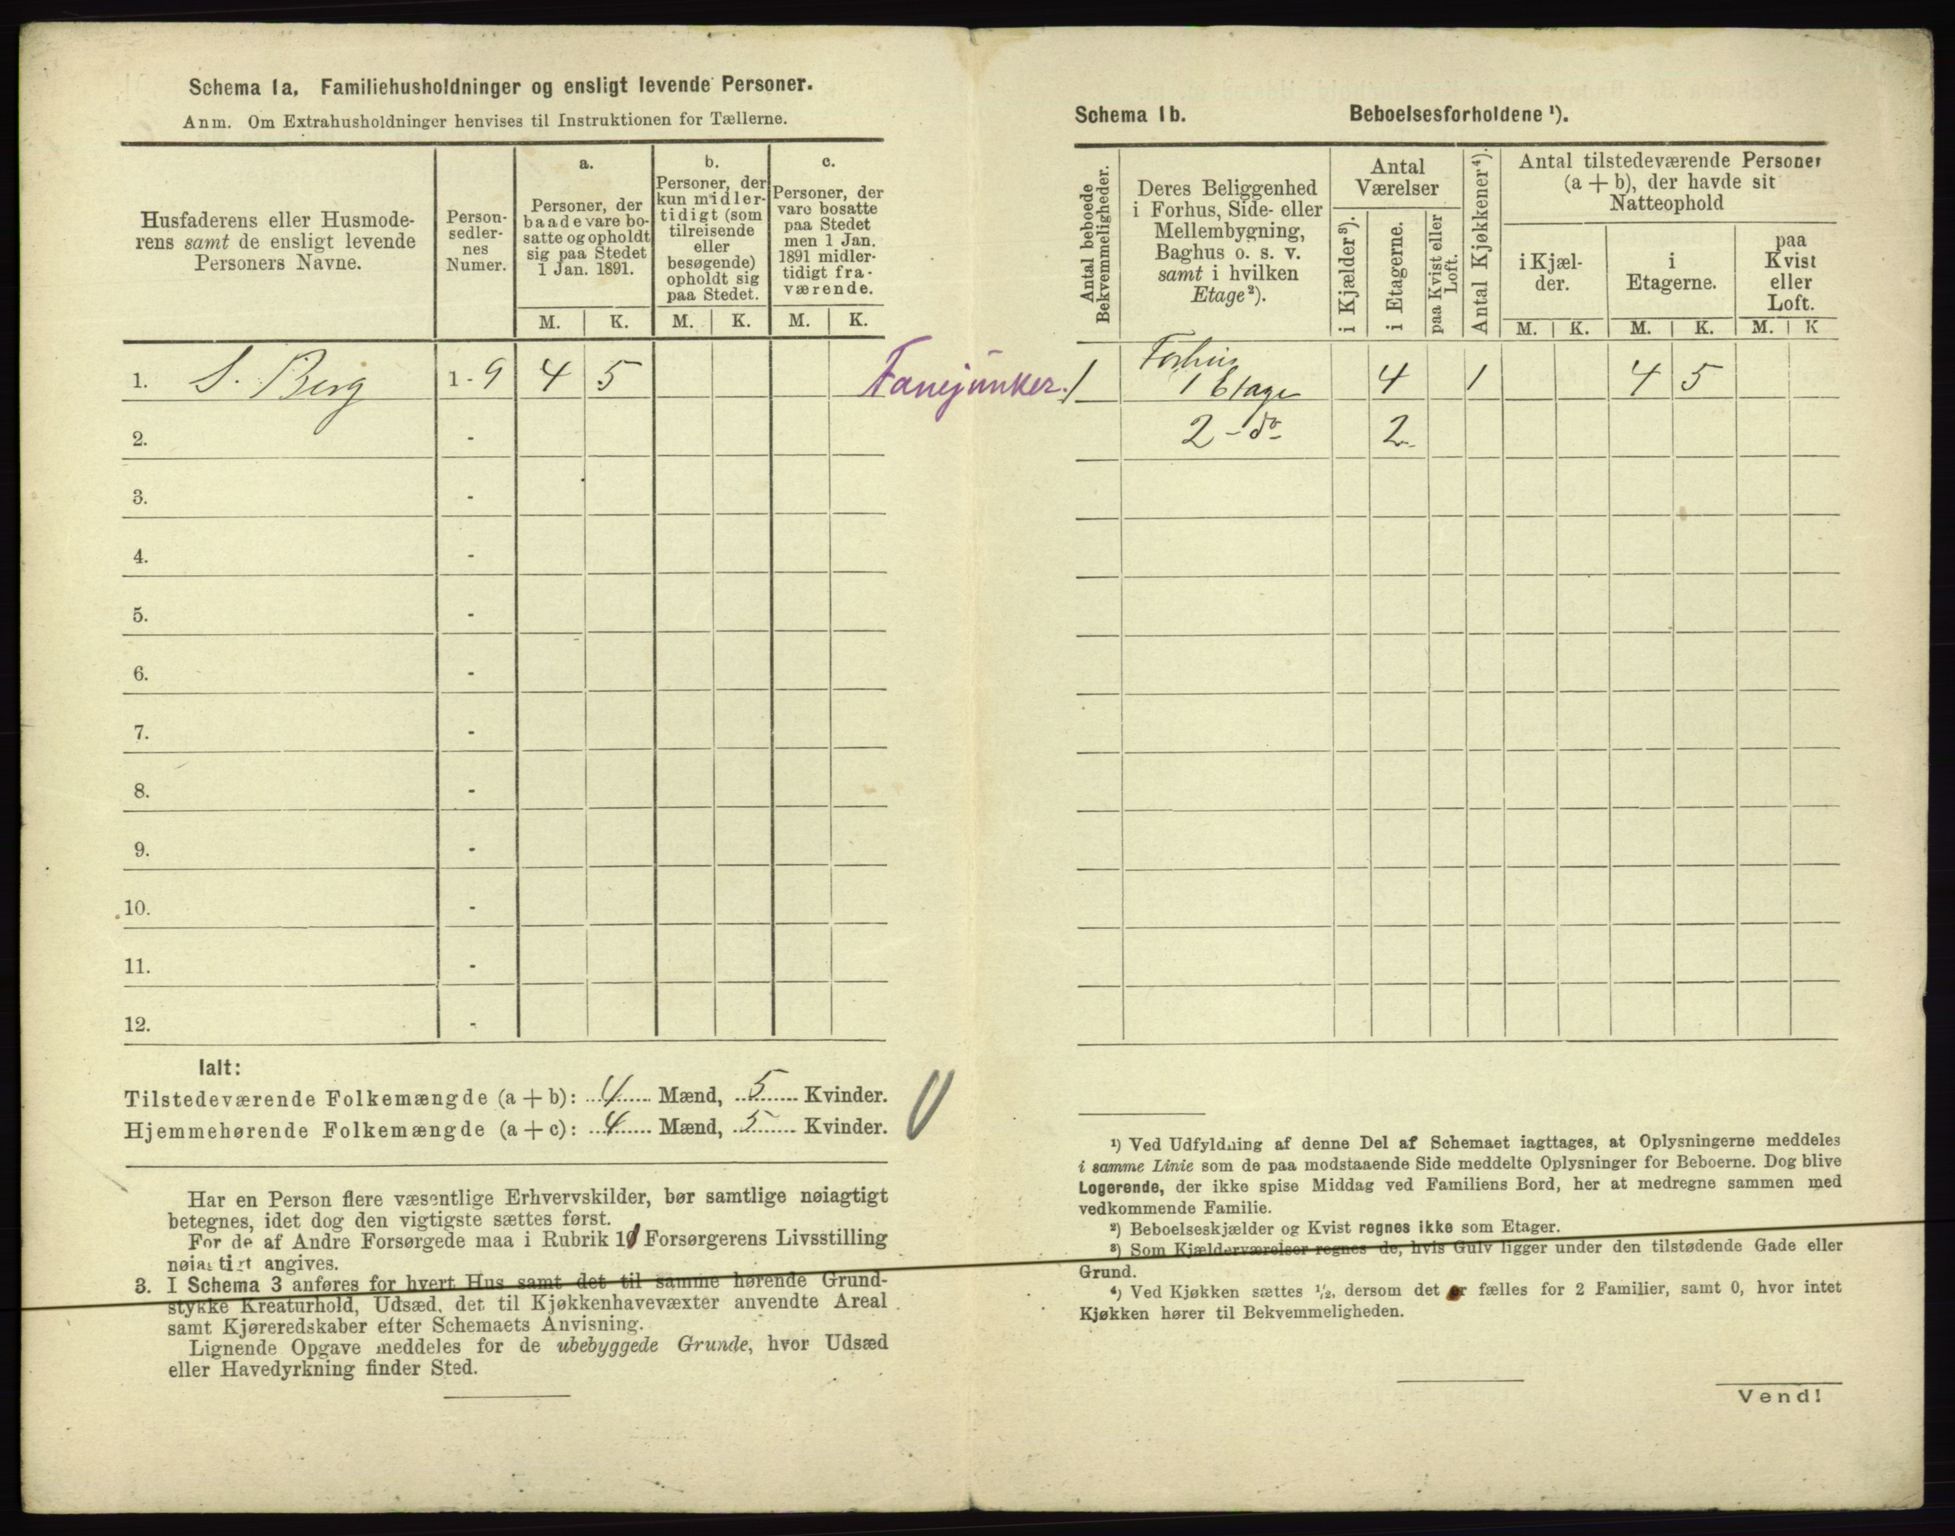 Schema 1a. Familiehusholdninger og ensligt levende Personer.
Anm. Om Extrahusholdninger henvises til Instruktionen for Tællerne.
Husfaderens eller Husmode-
rens samt de ensligt levende
Personers Navne.
Person-
sedler-
nes
Numer.
a.
Personer, der
baade vare bo-
satte og opholdt
sig paa Stedet
1 Jan. 1891.
b.
Personer, der
kun midler-
tidigt (som
tilreisende
eller
besøgende)
opholdt sig
paa Stedet.
c.
Personer, der
vare bosatte
paa Stedet
men 1 Jan.
1891 midler-
tidigt fra-
værende.
M. K. M. K. M. K.
1. S. Berg 1 - 9 4 5 Fanejunker.
2. -
3. -
4. -
5. -
6. -
7. -
8. -
9. -
10. -
11. -
12. -
Ialt:
Tilstedeværende Folkemængde (a + b): 4 Mænd, 5 Kvinder.
Hjemmehørende Folkemængde (a + c): 4 Mænd, 5 Kvinder.
Har en Person flere væsentlige Erhvervskilder, bør samtlige nøiagtigt
betegnes, idet dog den vigtigste sættes først.
For de af Andre Forsørgede maa i Rubrik 10 Forsørgerens Livsstilling
nøiagtigt angives.
3. I Schema 3 anføres for hvert Hus samt det til samme hørende Grund-
stykke Kreaturhold, Udsæd, det til Kjøkkenhavevæxter anvendte Areal
samt Kjøreredskaber efter Schemaets Anvisning.
Lignende Opgave meddeles for de ubebyggede Grunde, hvor Udsæd
eller Havedyrkning finder Sted.
Schema 1b. Beboelsesforholdene ¹).
Antal beboede
Bekvemmeligheder.
Deres Beliggenhed
i Forhus, Side- eller
Mellembygning,
Baghus o. s. v.
samt i hvilken
Etage²).
Antal
Værelser
i Kjælder³).
i Etagerne.
paa Kvist eller
Loft.
Antal Kjøkkener⁴).
Antal tilstedeværende Personer
(a + b), der havde sit
Natteophold
i Kjæl-
der.
i
Etagerne.
paa
Kvist
eller
Loft.
M. K. M. K. M. K
1 Forhus
1 Etage 4 1 4 5
2 - do 2
¹) Ved Udfyldning af denne Del af Schemaet iagttages, at Oplysningerne meddeles
i samme Linie som de paa modstaaende Side meddelte Oplysninger for Beboerne. Dog blive
Logerende, der ikke spise Middag ved Familiens Bord, her at medregne sammen med
vedkommende Familie.
²) Beboelseskjælder og Kvist regnes ikke som Etager.
³) Som Kjælderværelser regnes de, hvis Gulv ligger under den tilstødende Gade eller
Grund.
⁴) Ved Kjøkken sættes ½, dersom det er fælles for 2 Familier, samt 0, hvor intet
Kjøkken hører til Bekvemmeligheden.
Vend!